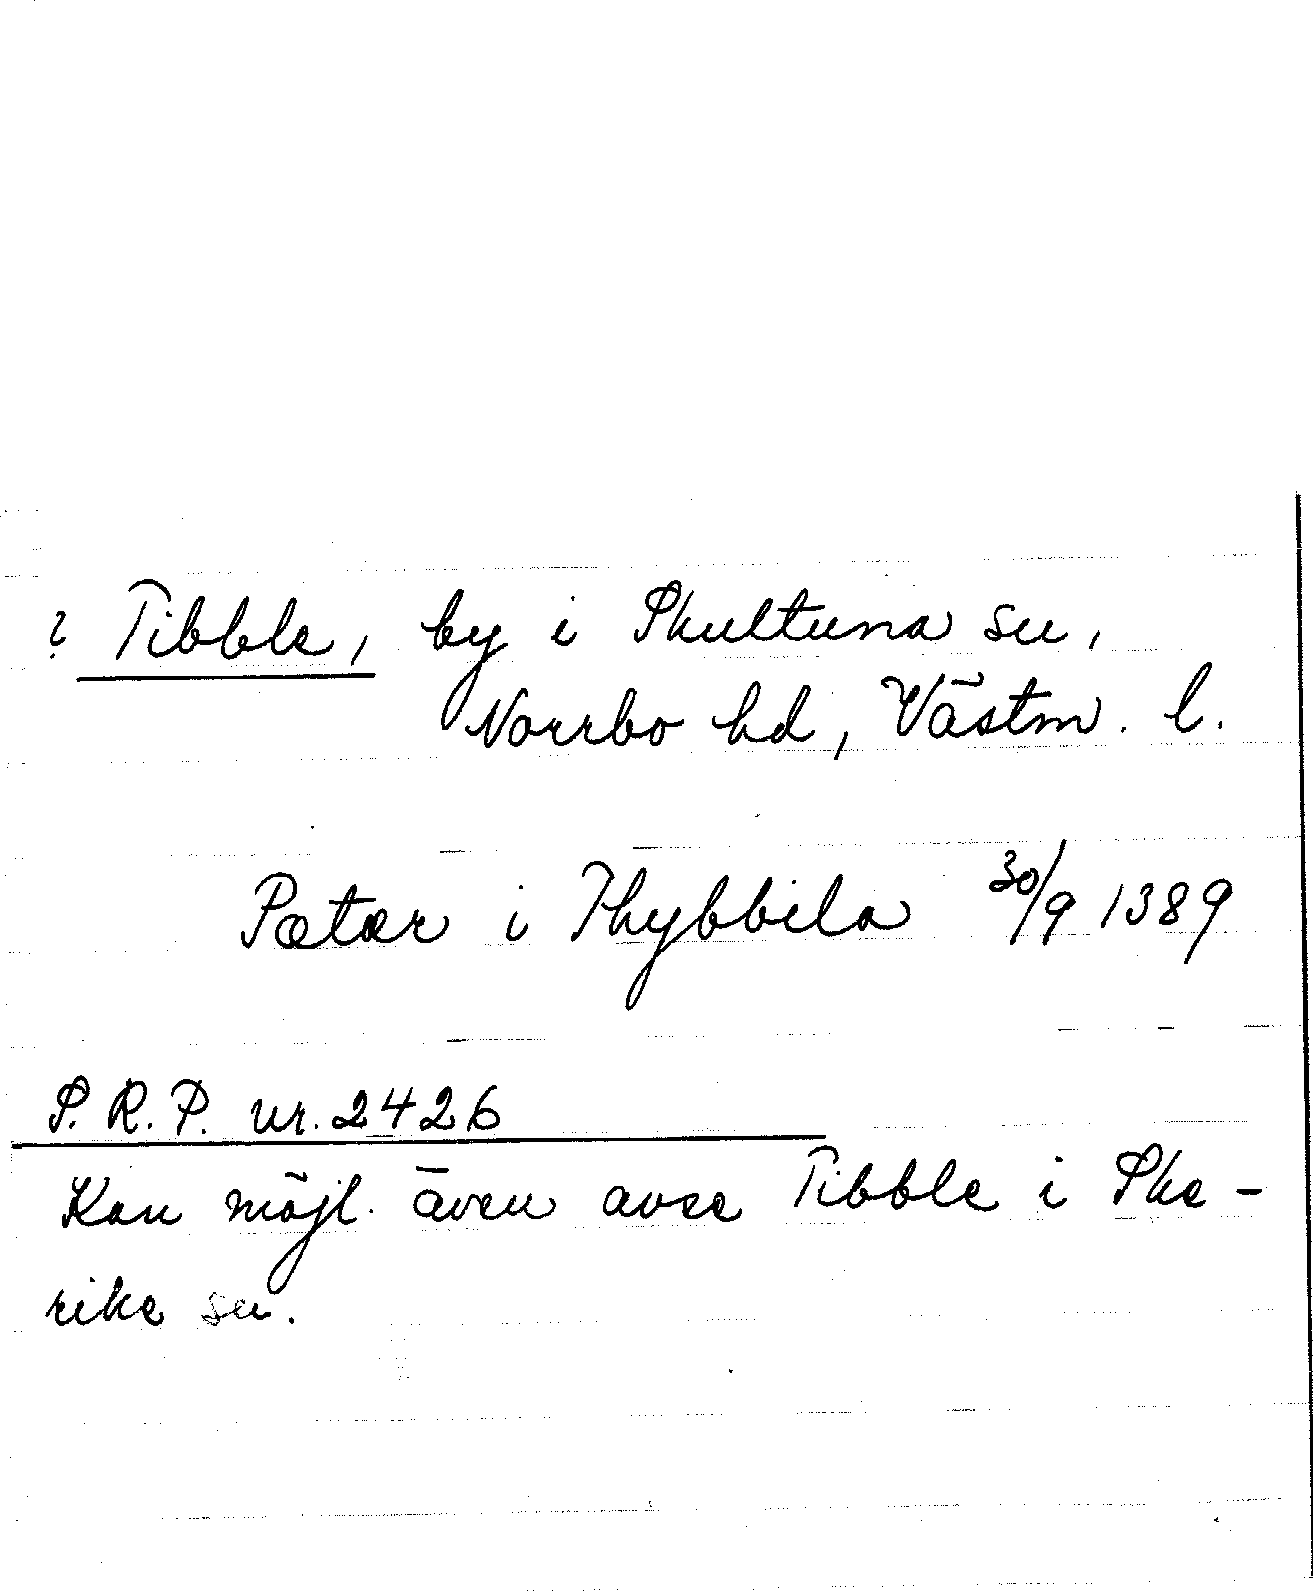 ? Tibble, by i Skultuna sn,
Norrbo hd, Västm. l.
Pætær i Thybbila 30/9 1389
S. R. P. nr. 2426
Kan möjl. även avse Tibble i Ske-
rike sn.